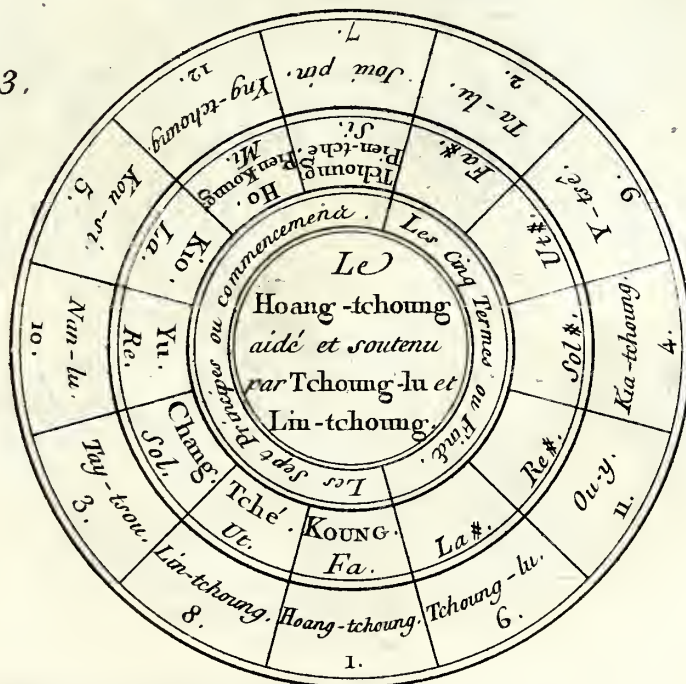 3.
Le
Hoang-tchoung
aidé et soutenu
par Tchoung-lu et
Lin-tchoung.
Les Sept Principes ou commencemens.
Les Cinq Termes ou Fins.
KOUNG.
Fa.
Tché.
Ut.
Chang.
Sol.
Yu.
Re.
Kio.
La.
Ho.
Pien Koung
Mi.
Tchoung.
Pien-tché.
Si.
Fa#.
Ut#.
Sol#.
Re#.
La#.
Hoang-tchoung.
1.
Lin-tchoung.
8.
Tay-tsou.
3.
Nan-lu.
10.
Kou-si.
5.
Yng-tchoung.
12.
Joui pin.
7.
Ta-lu.
2.
Y-tsé.
9.
Kia-tchoung.
4.
Ou-y.
11.
Tchoung-lu.
6.